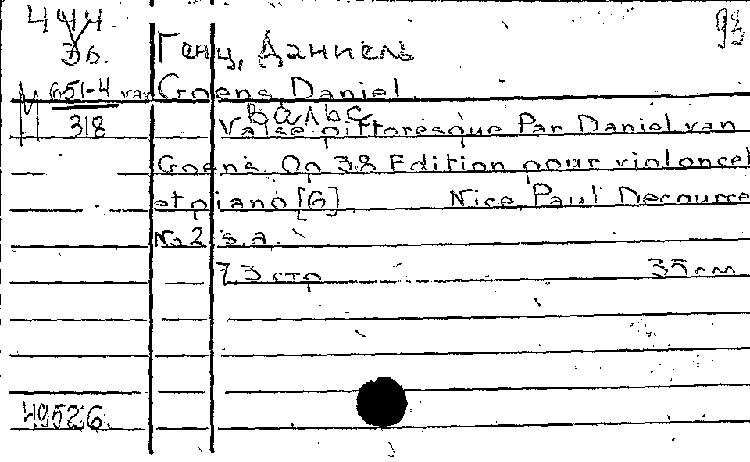 444 93
Эб. Генц, Даниель
М 651-4 van Goens, Daniel
Вальс
318 Valse pittoresque Par Daniel van
Goens. Op 38 Edition pour violoncel
et piano [G] Nice, Paul Decource
No 2 s.a.
7,3 стр 35 см
49526